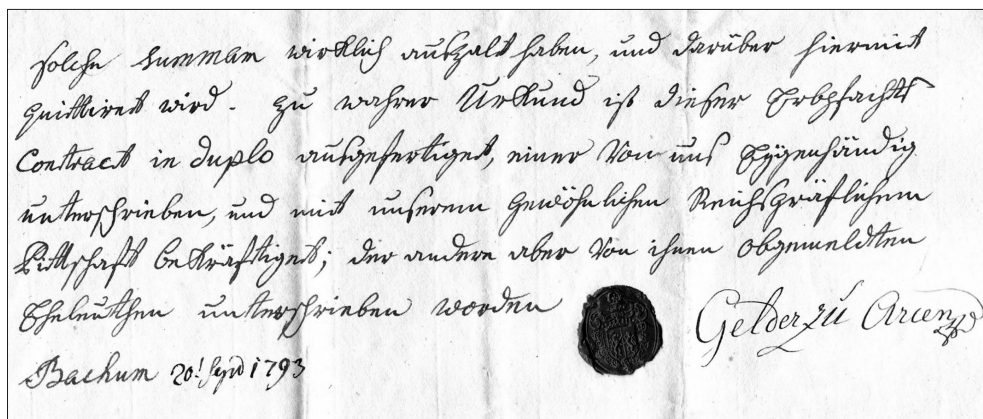 solche summam wircklich auszalt haben, und darüber hiermit
quittiret wird. zu wahrer Urkund ist dieser Erbpfachts
Contract in duplo ausgefertiget, einer von uns Eygenhändig
unterschrieben, und mit unserem gewöhnlichen Reichsgräflichem
Pittschaft bekräftiget; der andere aber von ihnen obgemeldten
Eheleuthen unterschrieben worden
Gelder zu Arcen
Bachum 20t 1793